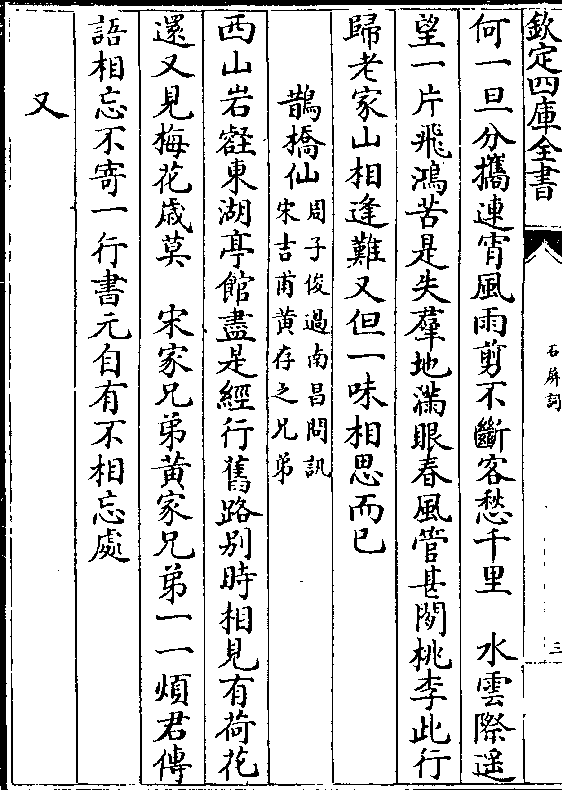 欽定四庫全書
石屏詞
三
何一旦分攜連宵風雨剪不斷客愁千里　水雲際遥
望一片飛鴻苦是失羣地滿眼春風管甚閒桃李此行
歸老家山相逢難又但一味相思而已
鵲橋仙 周子俊過南昌問訊
宋吉甫黄存之兄弟
西山岩壑東湖亭館盡是經行舊路别時相見有荷花
還又見梅花歳莫　宋家兄弟黄家兄弟一一煩君傳
語相忘不寄一行書元自有不相忘處
又